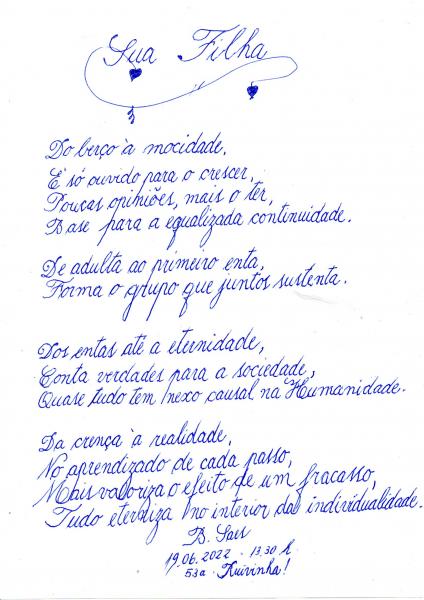 Sua Filha
Do berço à mocidade,
É só ouvido para o crescer,
Poucas opiniões, mais o ter,
Base para a equalizada continuidade.
De adulta ao primeiro enta,
Forma o grupo que juntos sustenta.
Dos entas até a eternidade,
Conta verdades para a sociedade,
Quase tudo tem nexo causal na Humanidade.
Da crença à realidade,
No aprendizado de cada passo,
Mais valoriza o efeito de um fracasso,
Tudo eterniza no interior da individualidade.
B. Saes
19.06.2022 - 13.30 h
53a - Ruivinha!